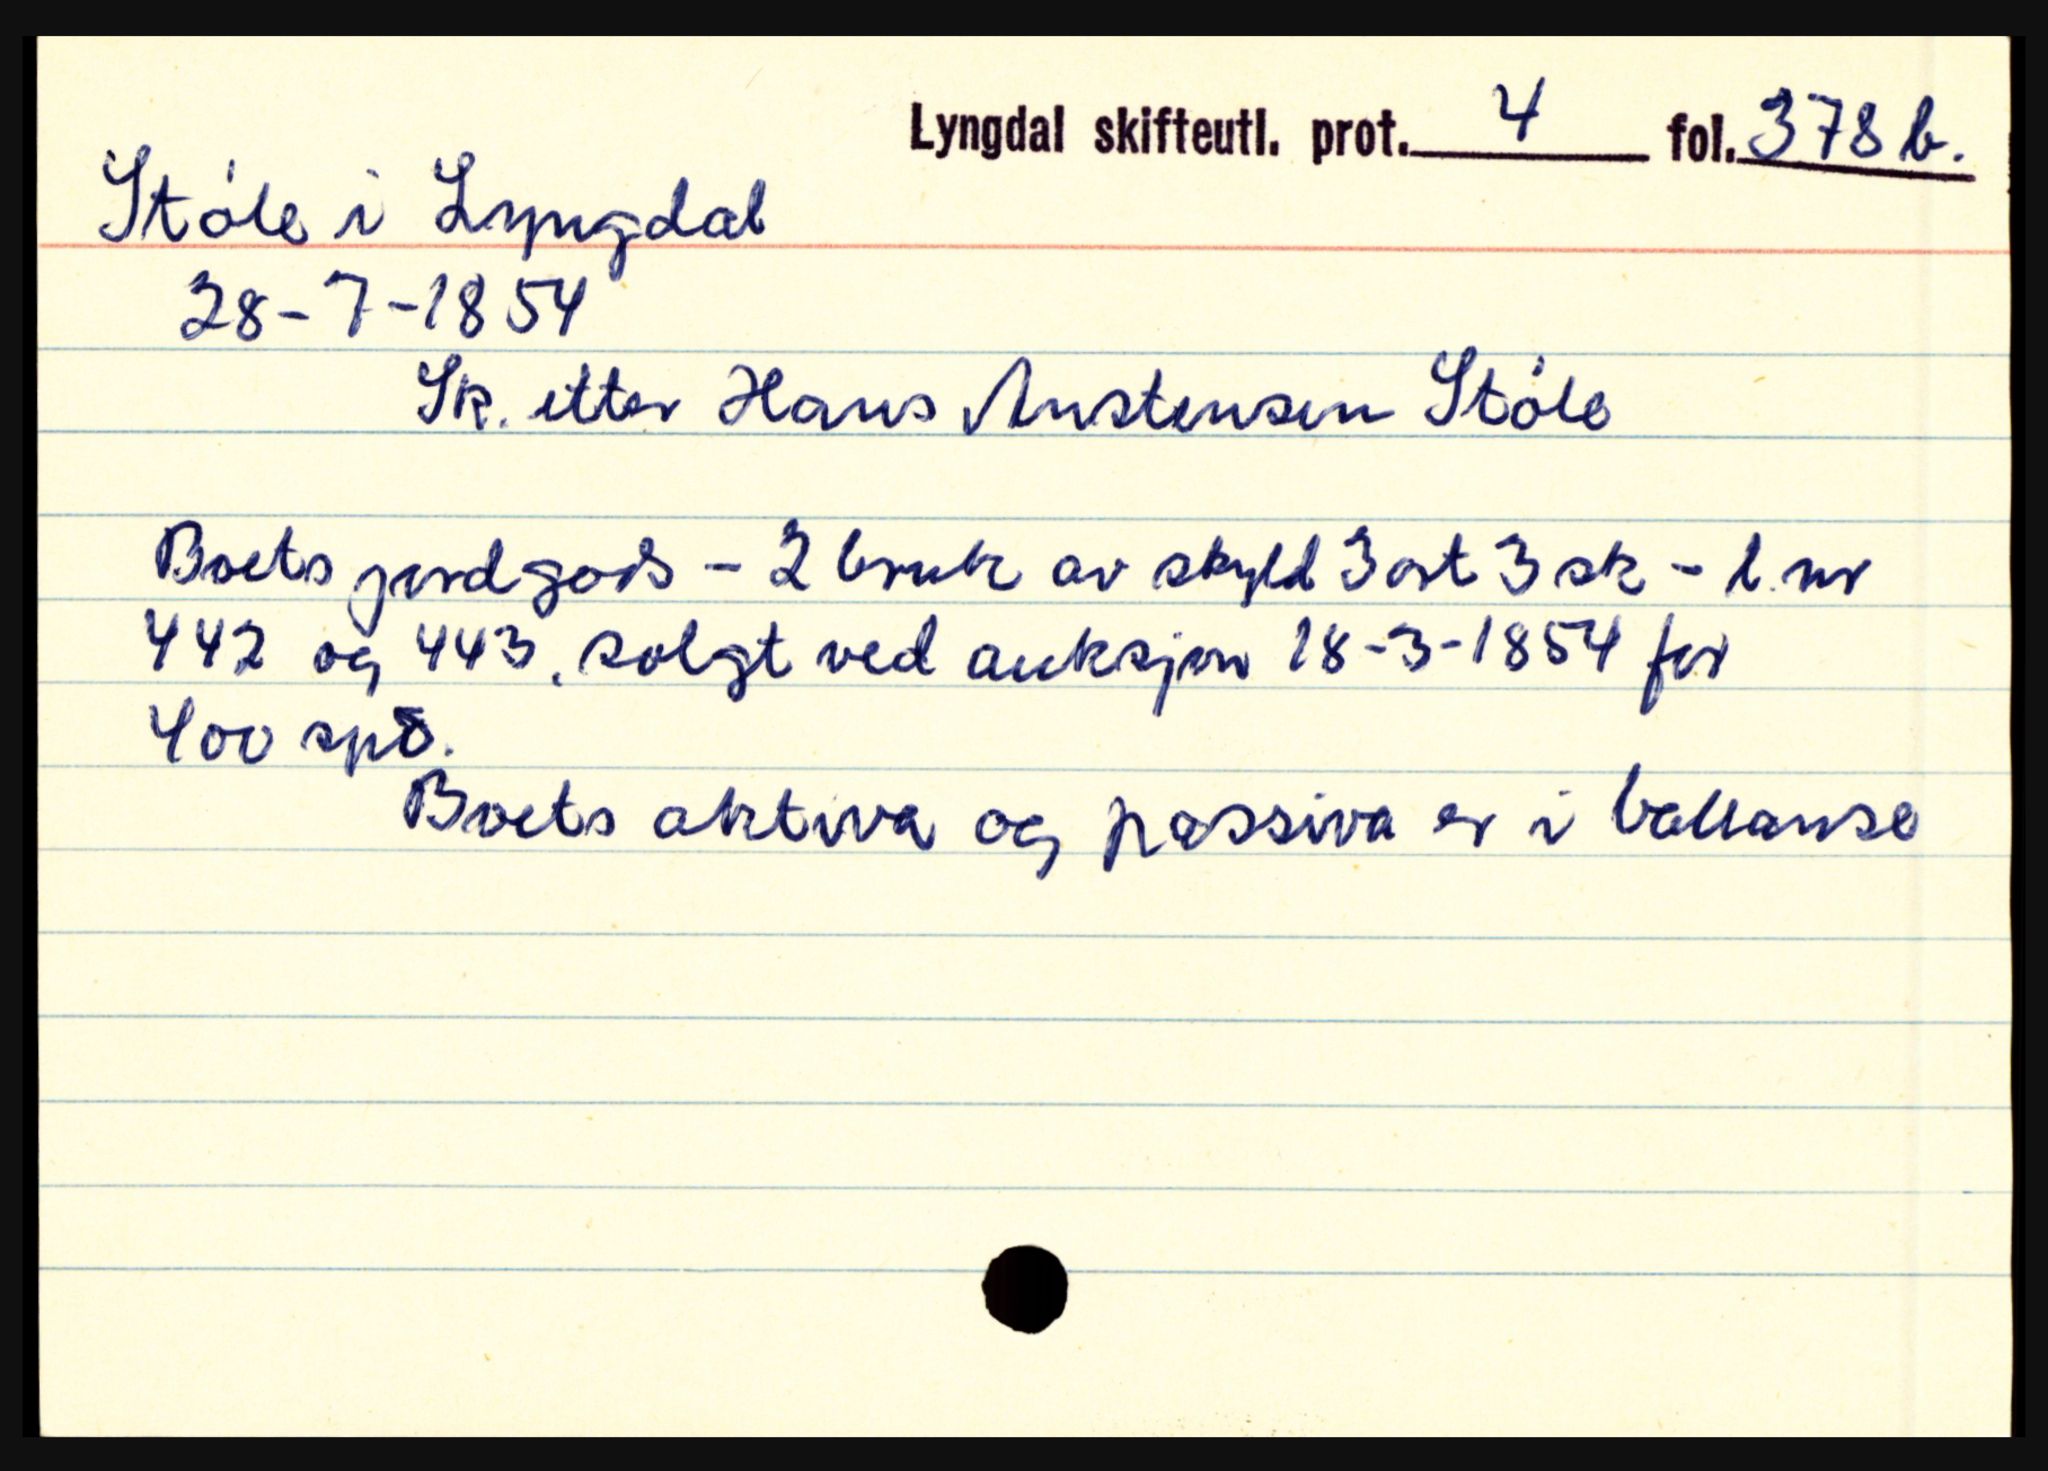 Lyngdal skifteutl. prot. 4 fol. 378 b.
Ståle i Lyngdal
28-7-1854
Sk. etter Hans Austensen Ståle
Boets jordgods - 2 bruk av skyld 3 ort 3 sk - l. nr
442 og 443, solgt ved auksjon 18-3-1854 for
400 spd.
Boets aktiva og passiva er i ballanse